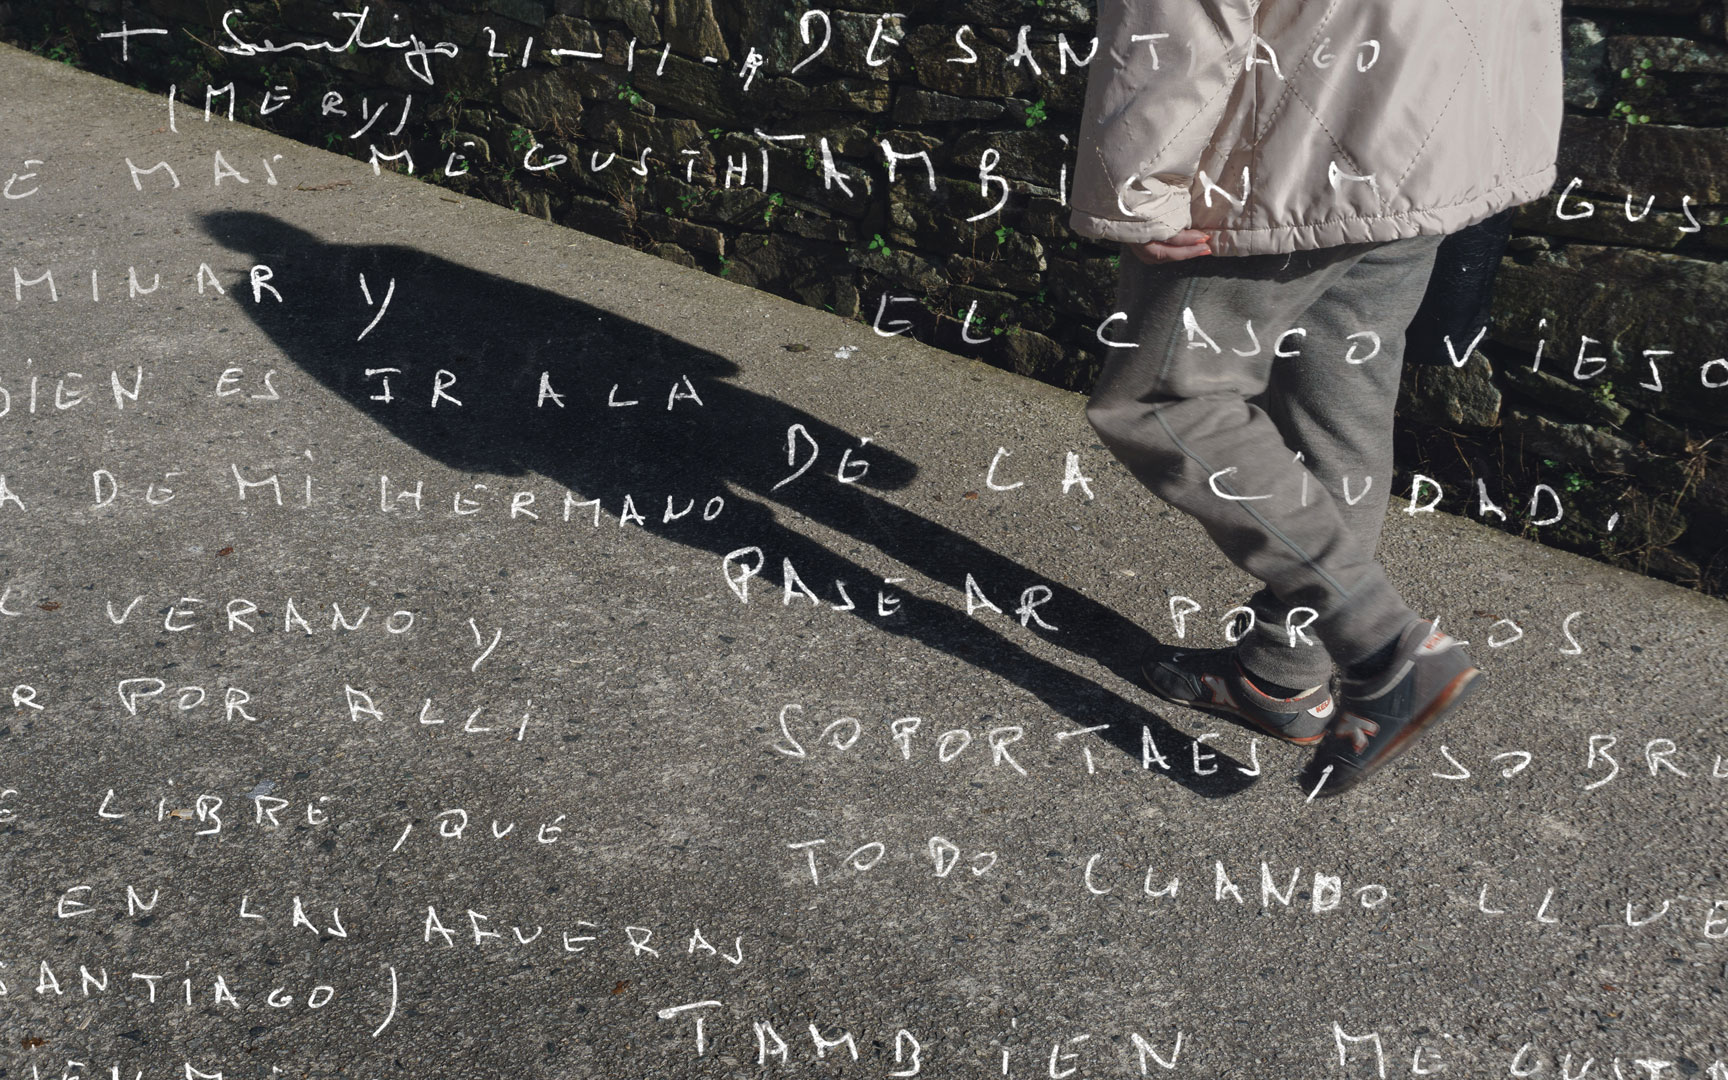 + Santiago 21-11-
(MERY)
E MAS ME GUSTA
MINAR Y
BIEN ES IR A LA
A DE MI HERMANO
L VERANO Y
R POR ALLI
E LIBRE, QUE
EN LAS AFUERAS
SANTIAGO)
DE SANTIAGO
TAMBIEN M GUS
EL CASCO VIEJO
DE LA CIUDAD,
PASEAR POR LOS
SOPORTAES, SOBRE
TODO CUANDO LLUE
TAMBIEN ME GUSTA